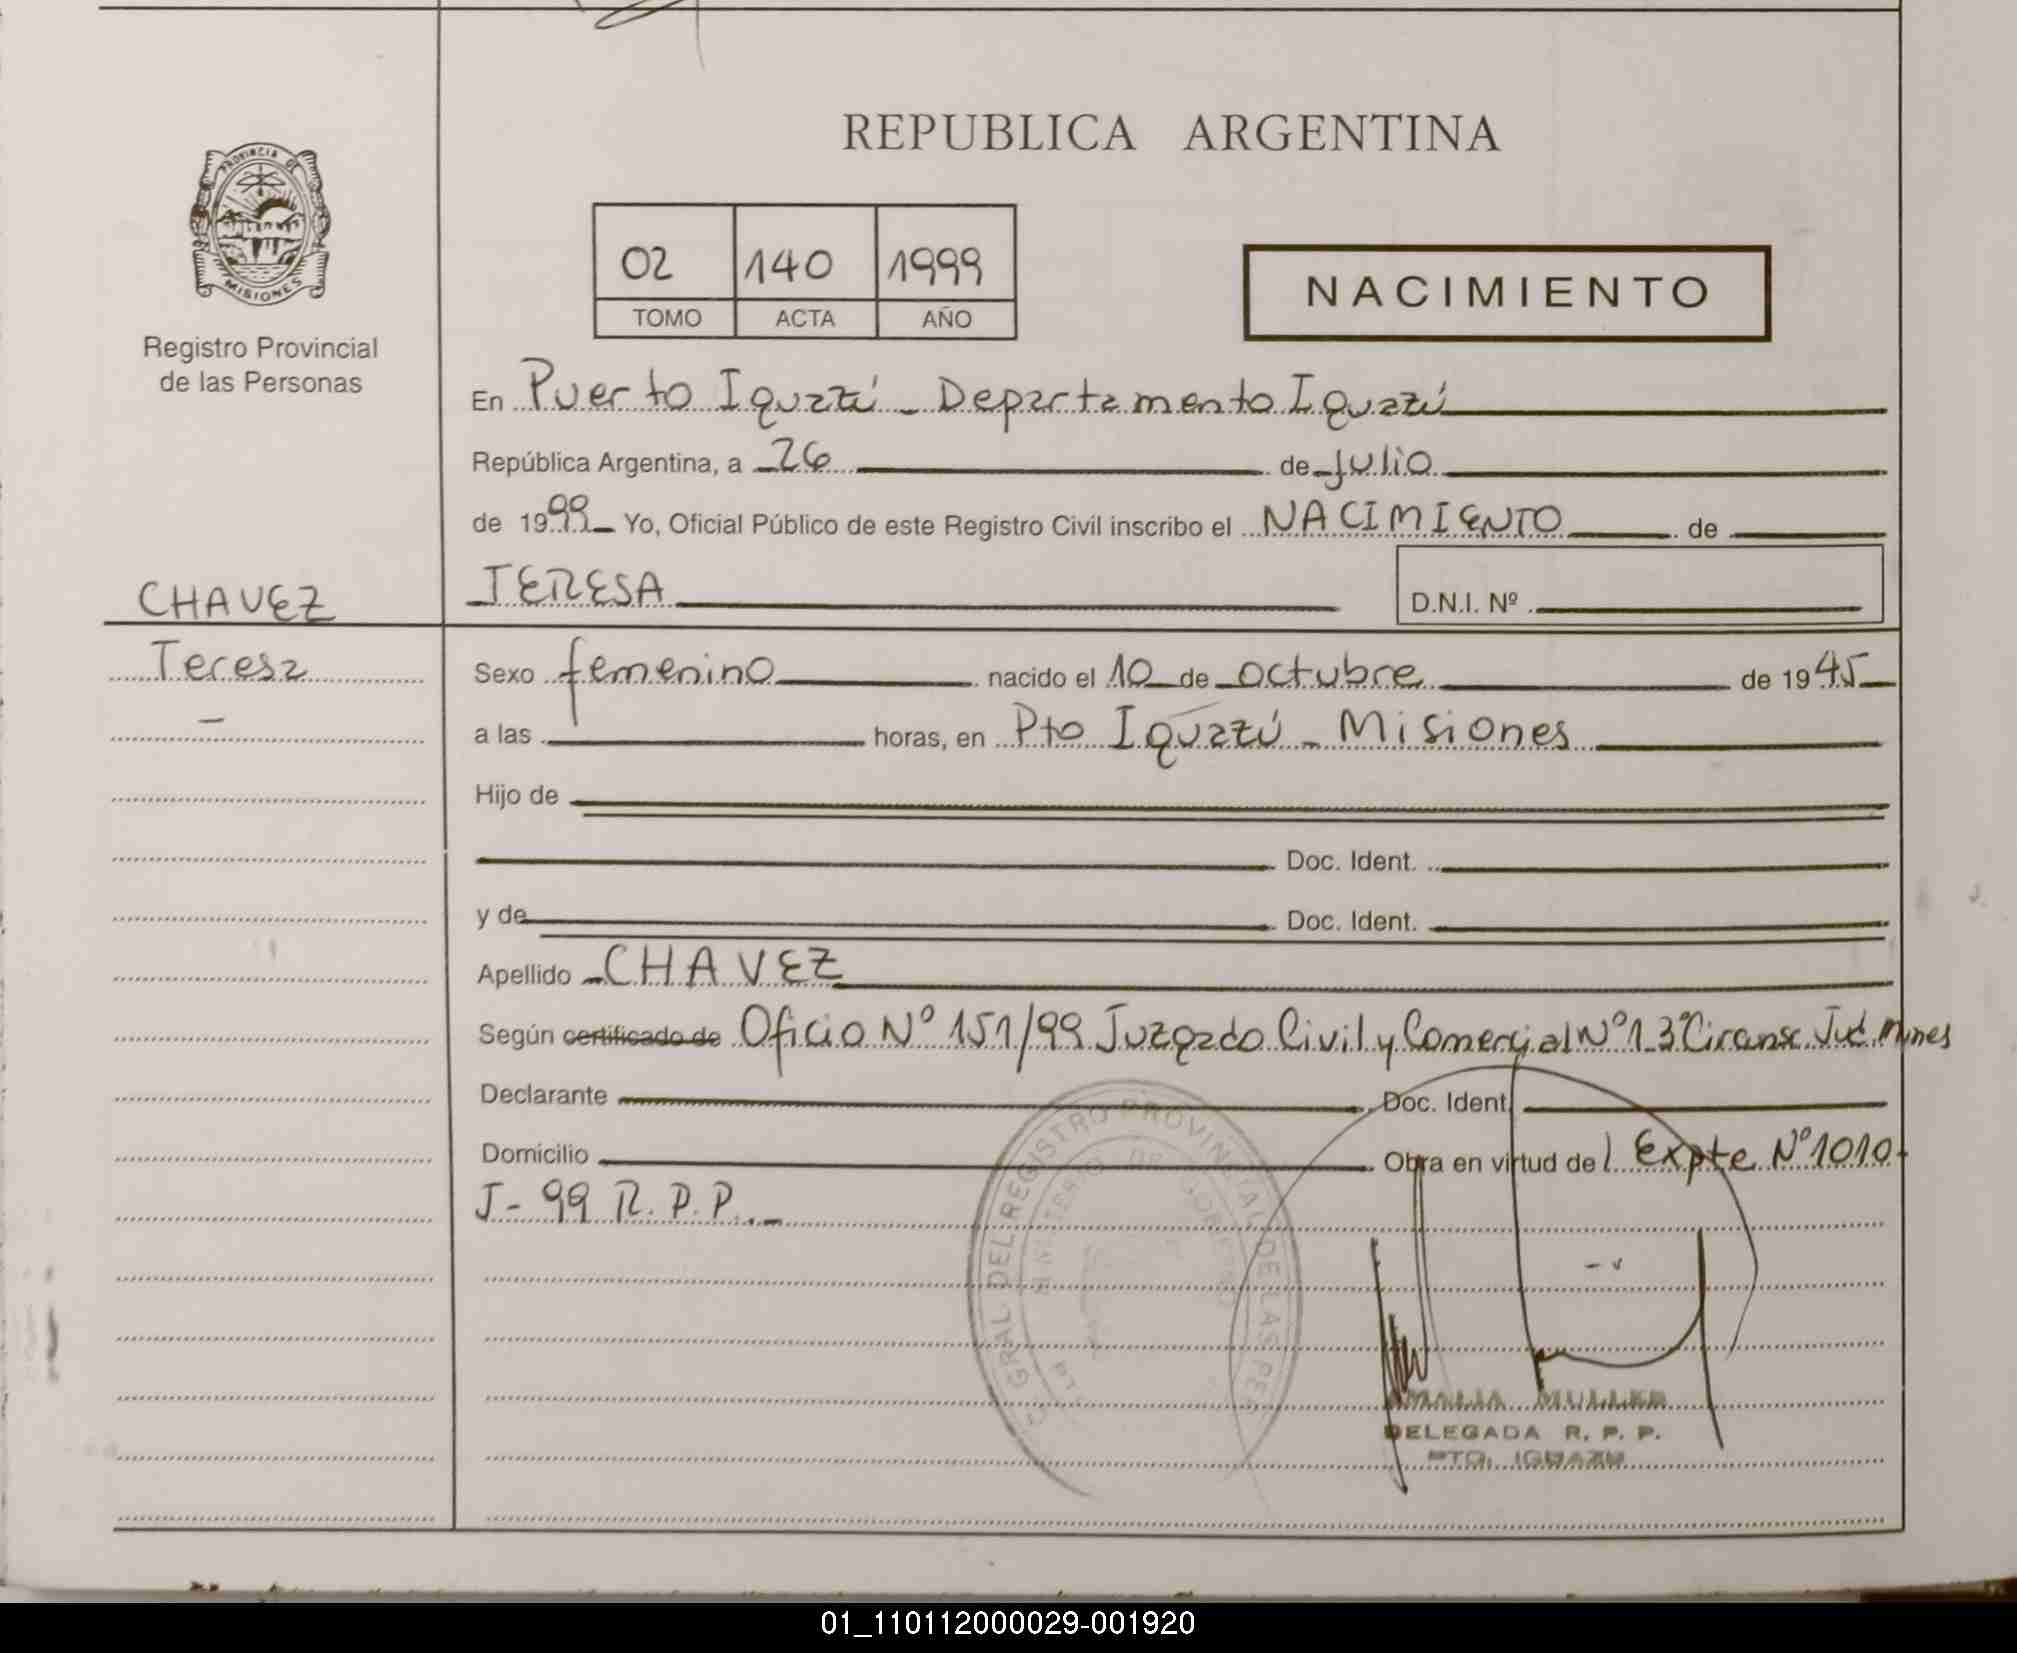 REPUBLICA ARGENTINA
PROVINCIA DE
MISIONES
Registro Provincial
de las Personas
02 140 1999
TOMO ACTA AÑO
NACIMIENTO
En Puerto Iguazú - Departamento Iguazú
República Argentina, a 26 de julio
de 1999 Yo, Oficial Público de este Registro Civil inscribo el NACIMIENTO de
CHAVEZ
TERESA
D.N.I. Nº
Teresa
Sexo femenino nacido el 10 de octubre de 1945
a las horas, en Pto Iguazú - Misiones
Hijo de
Doc. Ident.
y de Doc. Ident.
Apellido CHAVEZ
Según certificado de Oficio Nº 151/99 Juzgado Civil y Comercial Nº 1 3º Circunsc. Jud. Mnes
Declarante Doc. Ident.
Domicilio Obra en virtud del Expte Nº 1010-
J-99 R.P.P..-
GRAL DEL REGISTRO PROVINCIAL DE LAS PER
MINISTERIO DE GOBIERNO
AMALIA MULLER
DELEGADA R. P. P.
PTO. IGUAZU
01_110112000029-001920